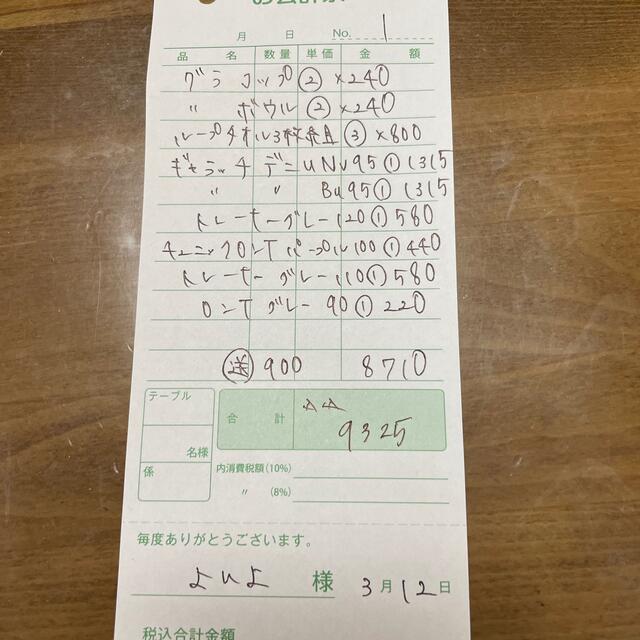 お会計票
月 日 No. 1
品 名 数量 単価 金 額
グラ コップ ② ×240
〃 ボウル ② ×240
ループタオル3枚組 ③ ×800
ギャラッチ デニ UNV95 ① 1315
〃 〃 Bu95 ① 1315
トレーナーグレー120 ① 580
チュニックロンT パープル100 ① 440
トレーナーグレー110 ① 580
ロンT グレー 90 ① 220
送 900 8710
テーブル
名様
係
合 計
9325
内消費税額(10%)
〃 (8%)
毎度ありがとうございます。
よいよ 様 3月12日
税込合計金額